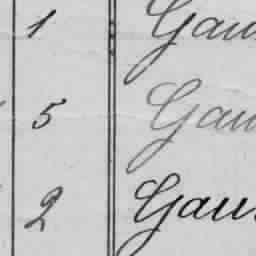 1 Gau
5 Gau
2 Gau